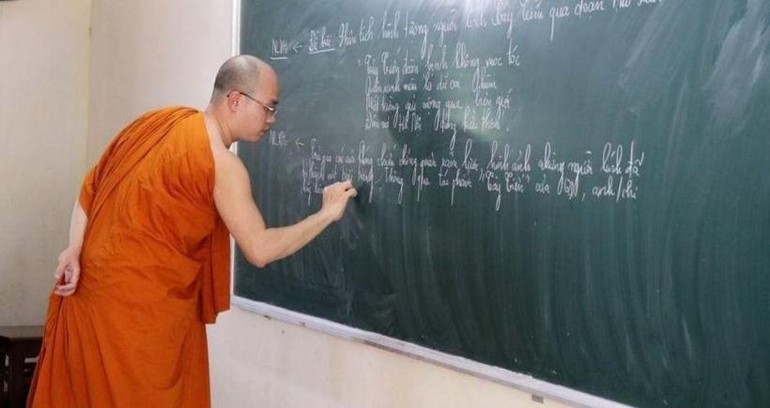 NLVH ← Đề bài: Phân tích hình tượng người lính Tây Tiến qua đoạn thơ sau
"Tây Tiến đoàn binh không mọc tóc
Quân xanh màu lá dữ oai hùm
Mắt trừng gửi mộng qua biên giới
Đêm mơ Hà Nội dáng kiều thơm".
← Trải qua các cuộc kháng chiến chống quân xâm hình ảnh những người lính đã
Thông qua tác phẩm "Tây Tiến" của QD, anh/chị
hãy